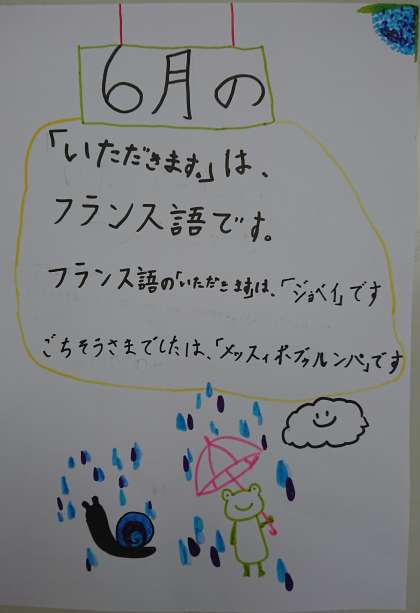 6月の
「いただきます。」は、
フランス語です。
フランス語の「いただきます」は、「ジョベイ」です
ごちそうさまでしたは、「メッスィポーブゥルンパ」です